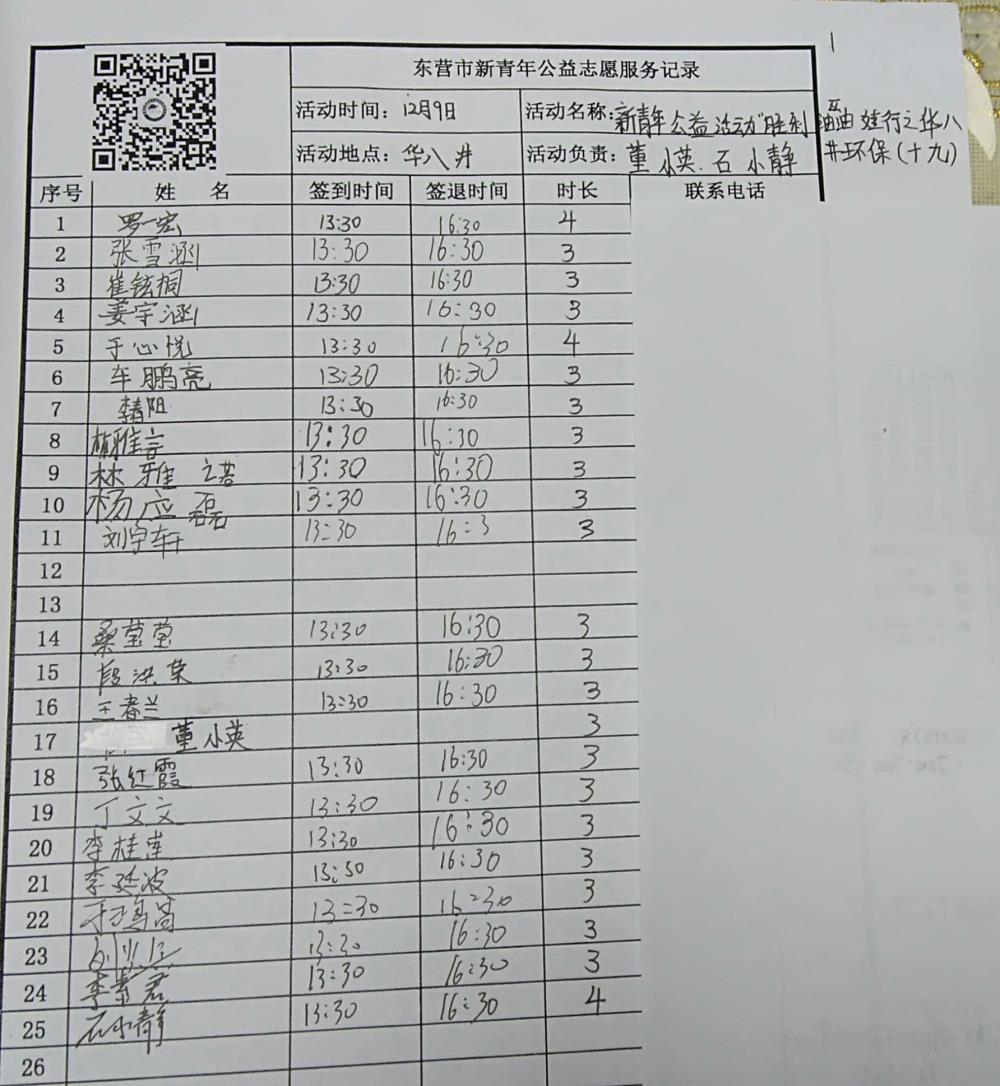 东营市新青年公益志愿服务记录
活动时间: 12月9日 活动名称: 新青年公益活动"胜利油娃行之华八
活动地点: 华八井 活动负责: 董小英.石小静 井环保(十九)
序号 姓名 签到时间 签退时间 时长 联系电话
1 罗一宏 13:30 16:30 4
2 张雪涵 13:30 16:30 3
3 崔铉桐 13:30 16:30 3
4 姜宇涵 13:30 16:30 3
5 于心悦 13:30 16:30 4
6 车鹏亮 13:30 16:30 3
7 13:30 16:30 3
8 林雅言 13:30 16:30 3
9 林雅之若 13:30 16:30 3
10 杨应磊 13:30 16:30 3
11 刘宇轩 13:30 16:3 3
12
13
14 桑莹莹 13:30 16:30 3
15 段洪荣 13:30 16:30 3
16 王春兰 13:30 16:30 3
17 董小英 3
18 张红霞 13:30 16:30 3
19 丁文文 13:30 16:30 3
20 李桂莲 13:30 16:30 3
21 李延波 13:30 16:30 3
22 13:30 16:30 3
23 13:30 16:30 3
24 李素君 13:30 16:30 3
25 石小静 13:30 16:30 4
26